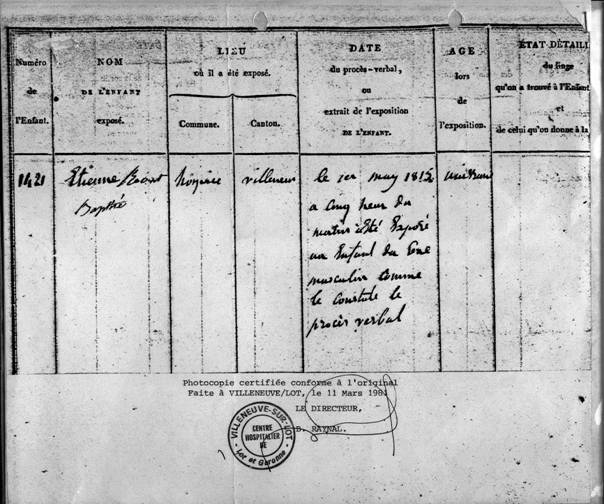 Numéro
de
l'Enfant.
NOM
DE L'ENFANT
exposé.
LIEU
où il a été exposé.
Commune.
Canton.
DATE
du procès-verbal,
ou
extrait de l'exposition
DE L'ENFANT.
AGE
lors
de
l'exposition.
ÉTAT DÉTAILL
du linge
qu'on a trouvé à l'Enfant
et
de celui qu'on donne à la
1421
Etienne
hospice
villeneuve
le 1er may 1812
a cinq heur du
matin a été Exposé
un Enfant du sexe
masculin comme
le constate le
procès verbal
Photocopie certifiée conforme à l'original
Faite à VILLENEUVE/LOT, le 11 Mars 1981
LE DIRECTEUR,
D. RAYNAL.
VILLENEUVE-SUR-LOT
CENTRE
HOSPITALIER
Lot et Garonne